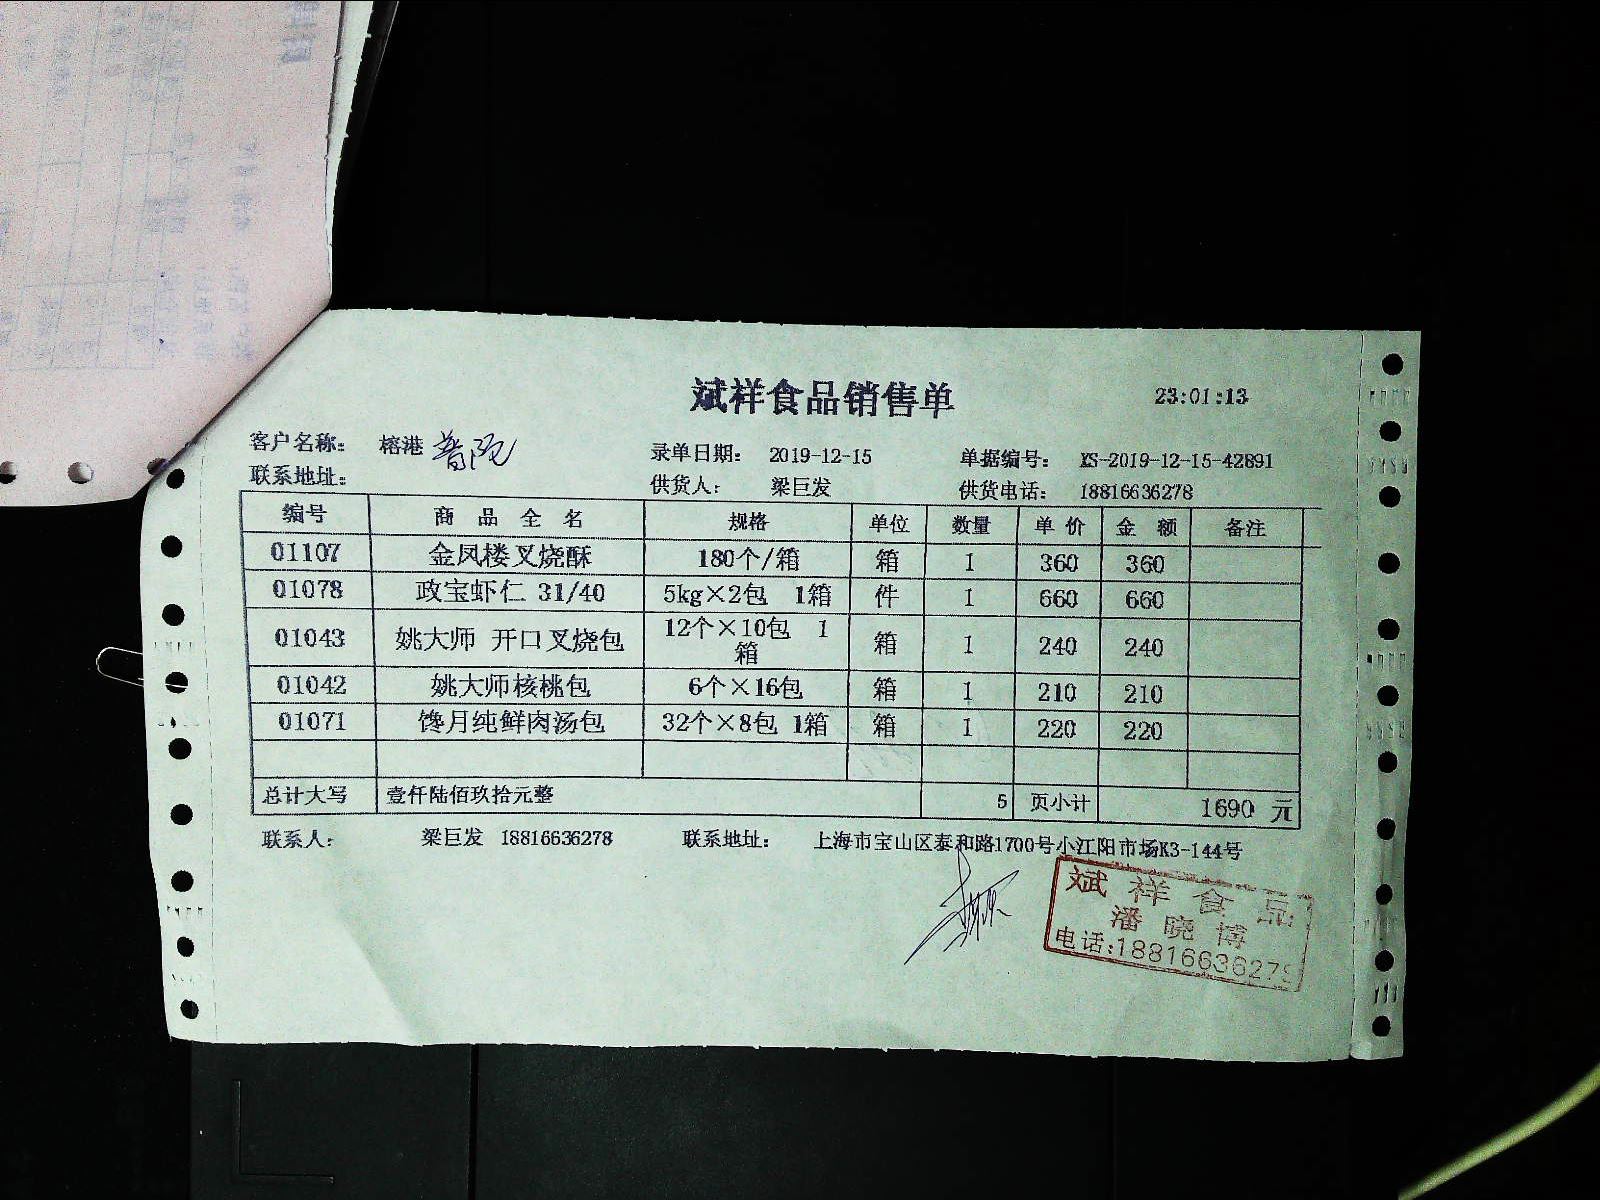 斌祥食品销售单 23:01:13
客户名称: 榕港 普陀 录单日期: 2019-12-15 单据编号: XS-2019-12-15-42891
联系地址: 供货人: 梁巨发 供货电话: 18816636278
编号 商品全名 规格 单位 数量 单价 金额 备注
01107 金凤楼叉烧酥 180个/箱 箱 1 360 360
01078 政宝虾仁 31/40 5kg×2包 1箱 件 1 660 660
01043 姚大师 开口叉烧包 12个×10包 1箱 箱 1 240 240
01042 姚大师核桃包 6个×16包 箱 1 210 210
01071 馋月纯鲜肉汤包 32个×8包 1箱 箱 1 220 220
总计大写 壹仟陆佰玖拾元整 5 页小计 1690 元
联系人: 梁巨发 18816636278 联系地址: 上海市宝山区泰和路1700号小江阳市场K3-144号
斌祥食品
潘晓博
电话:18816636278